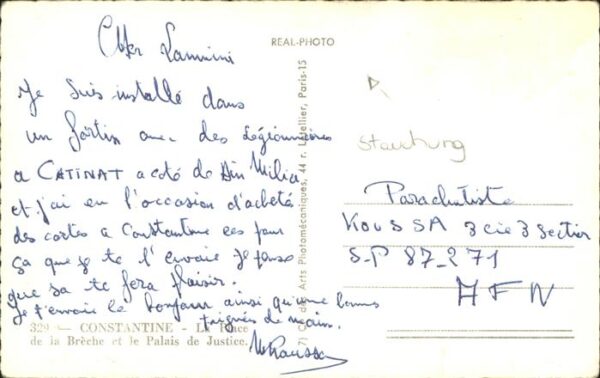 Cher Lamini
Je suis installé dans
un fortin avec des Légionnaires
a CATINAT a coté de Ain Milia
et j'ai eu l'occasion d'acheté
des cartes a Constantine ces pour
ça que je te l'envoie Je pense
que sa te fera plaisir.
Je t'envoie le bonjour ainsi qu'une bonne
poignés de main.
329 — CONSTANTINE - La Place
de la Brèche et le Palais de Justice.
REAL-PHOTO
des Arts Photomécaniques, 44 r. Letellier, Paris-15
Parachutiste
KOUSSA 3 cie 3 section
S.P 87_271
AFN